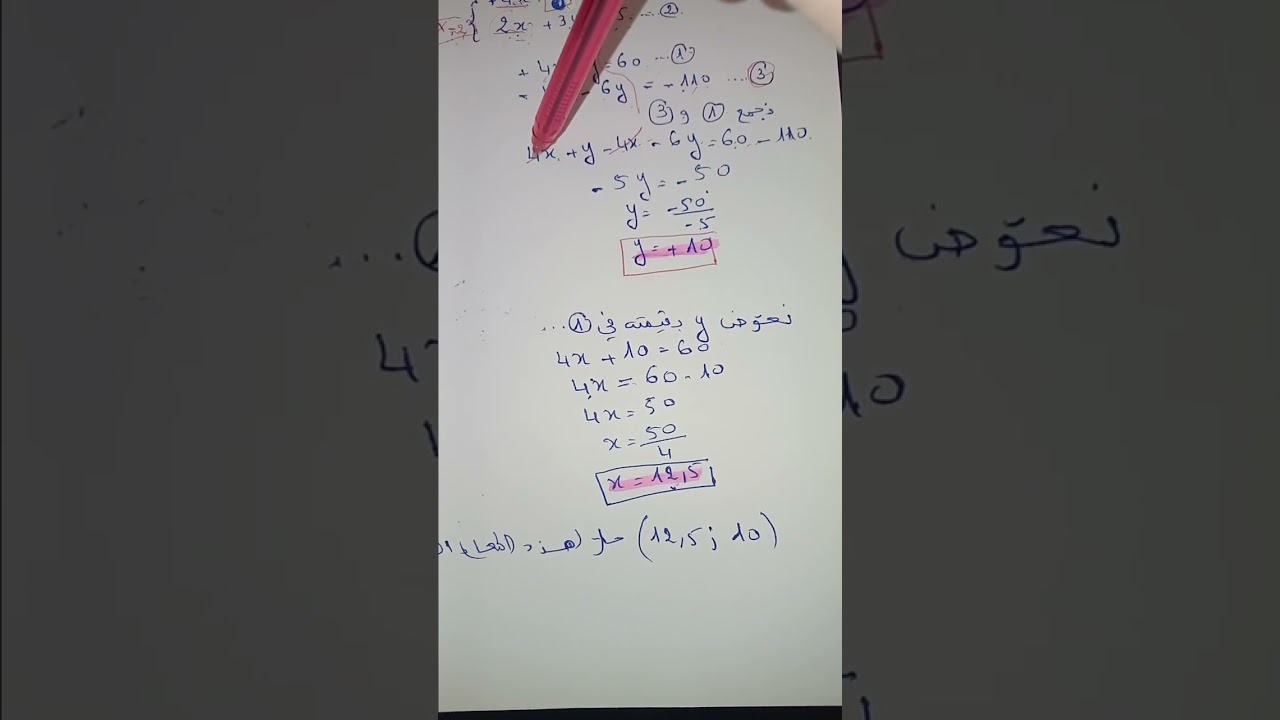 2x + 3 5 ... ②
+ 4 y = 60 ... ①
- - 6y = - 110 ... ③
نجمع ① و ③
4x + y - 4x - 6y = 60 - 110.
- 5y = - 50
y = -50/-5
y = + 10
نعوّض y بقيمته في ① ...
4x + 10 = 60
4x = 60 - 10
4x = 50
x = 50/4
x = 12,5
(12,5 ; 10) حل لهذه